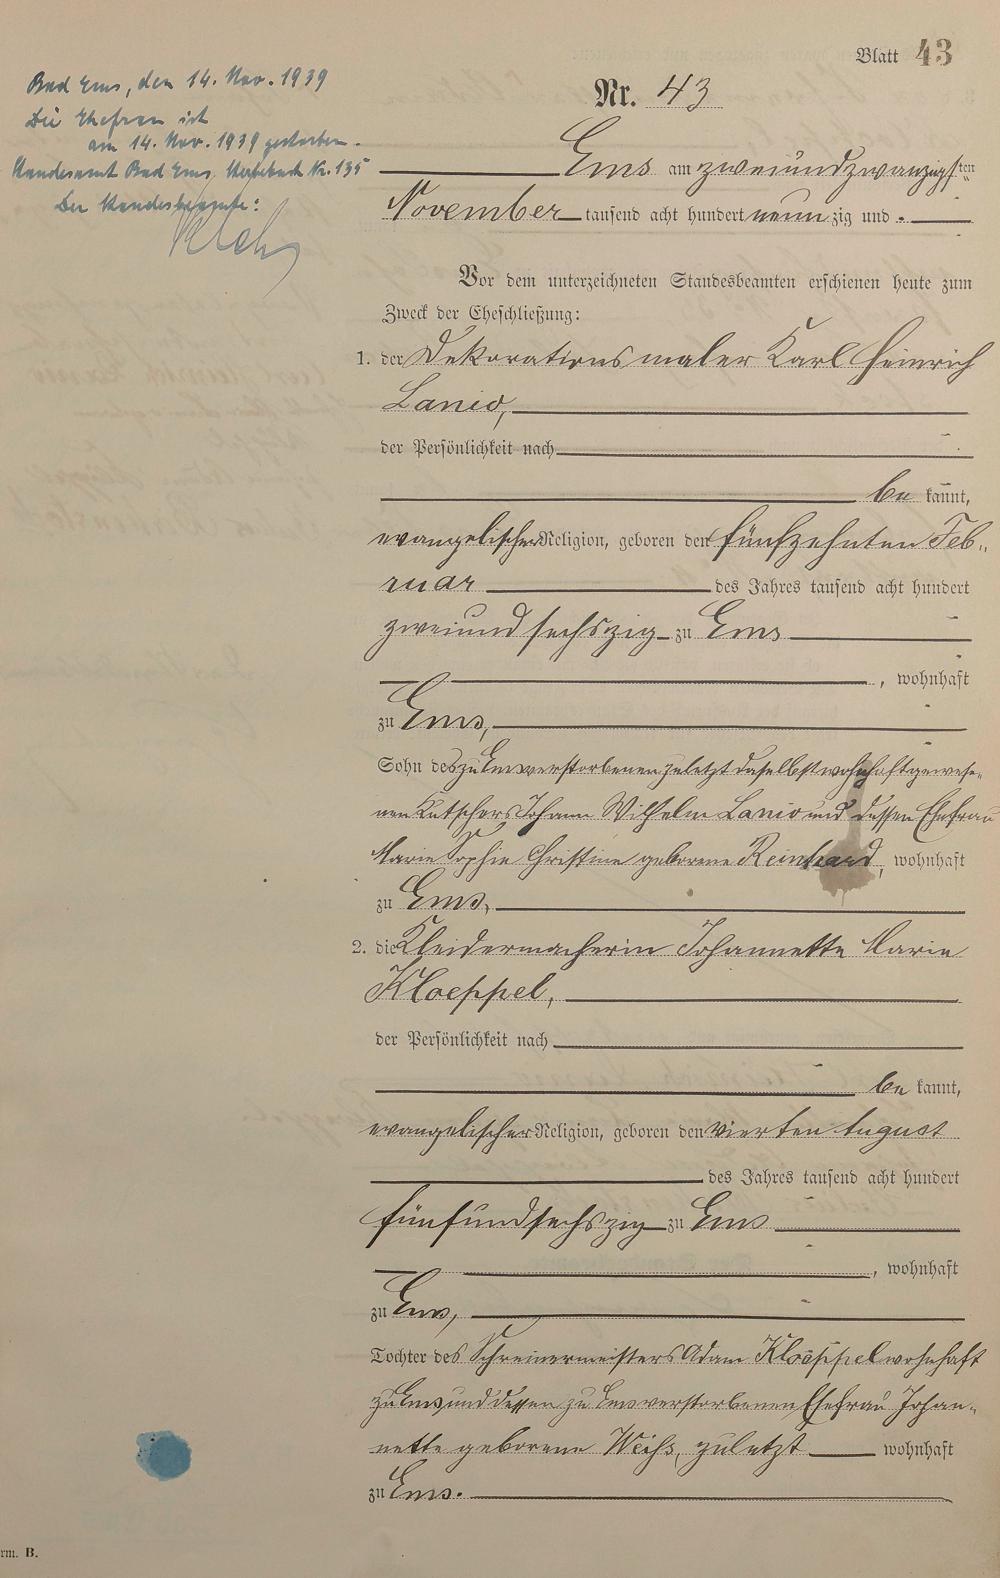 Blatt 43
Nr. 43
Bad Ems, den 14. Nov. 1939
Die Ehefrau ist
am 14. Nov. 1939 gestorben.
Standesamt Bad Ems Sterbebuch Nr. 135
Der Standesbeamte:
Ems am zweiundzwanzigsten
November tausend acht hundert neunzig und -
Vor dem unterzeichneten Standesbeamten erschienen heute zum
Zweck der Eheschließung:
1. der Dekorationsmaler Karl Heinrich
Lanio,
der Persönlichkeit nach
be kannt,
evangelischer Religion, geboren den fünfzehnten Feb-
ruar des Jahres tausend acht hundert
zweiundsechszig zu Ems
, wohnhaft
zu Ems,
Sohn des zu Ems verstorbenen zuletzt daselbst wohnhaft gewese-
nen Kutschers Johann Wilhelm Lanio und dessen Ehefrau
Marie Sophie Christine geborene Reinhard, wohnhaft
zu Ems,
2. die Kleidermacherin Johannette Marie
Kloeppel,
der Persönlichkeit nach
be kannt,
evangelischer Religion, geboren den vierten August
des Jahres tausend acht hundert
fünfundsechszig zu Ems
, wohnhaft
zu Ems,
Tochter des Schreinermeisters Adam Kloeppel wohnhaft
zu Ems und dessen zu Ems verstorbenen Ehefrau Johan-
nette geborene Weihs, zuletzt wohnhaft
zu Ems.
rm. B.